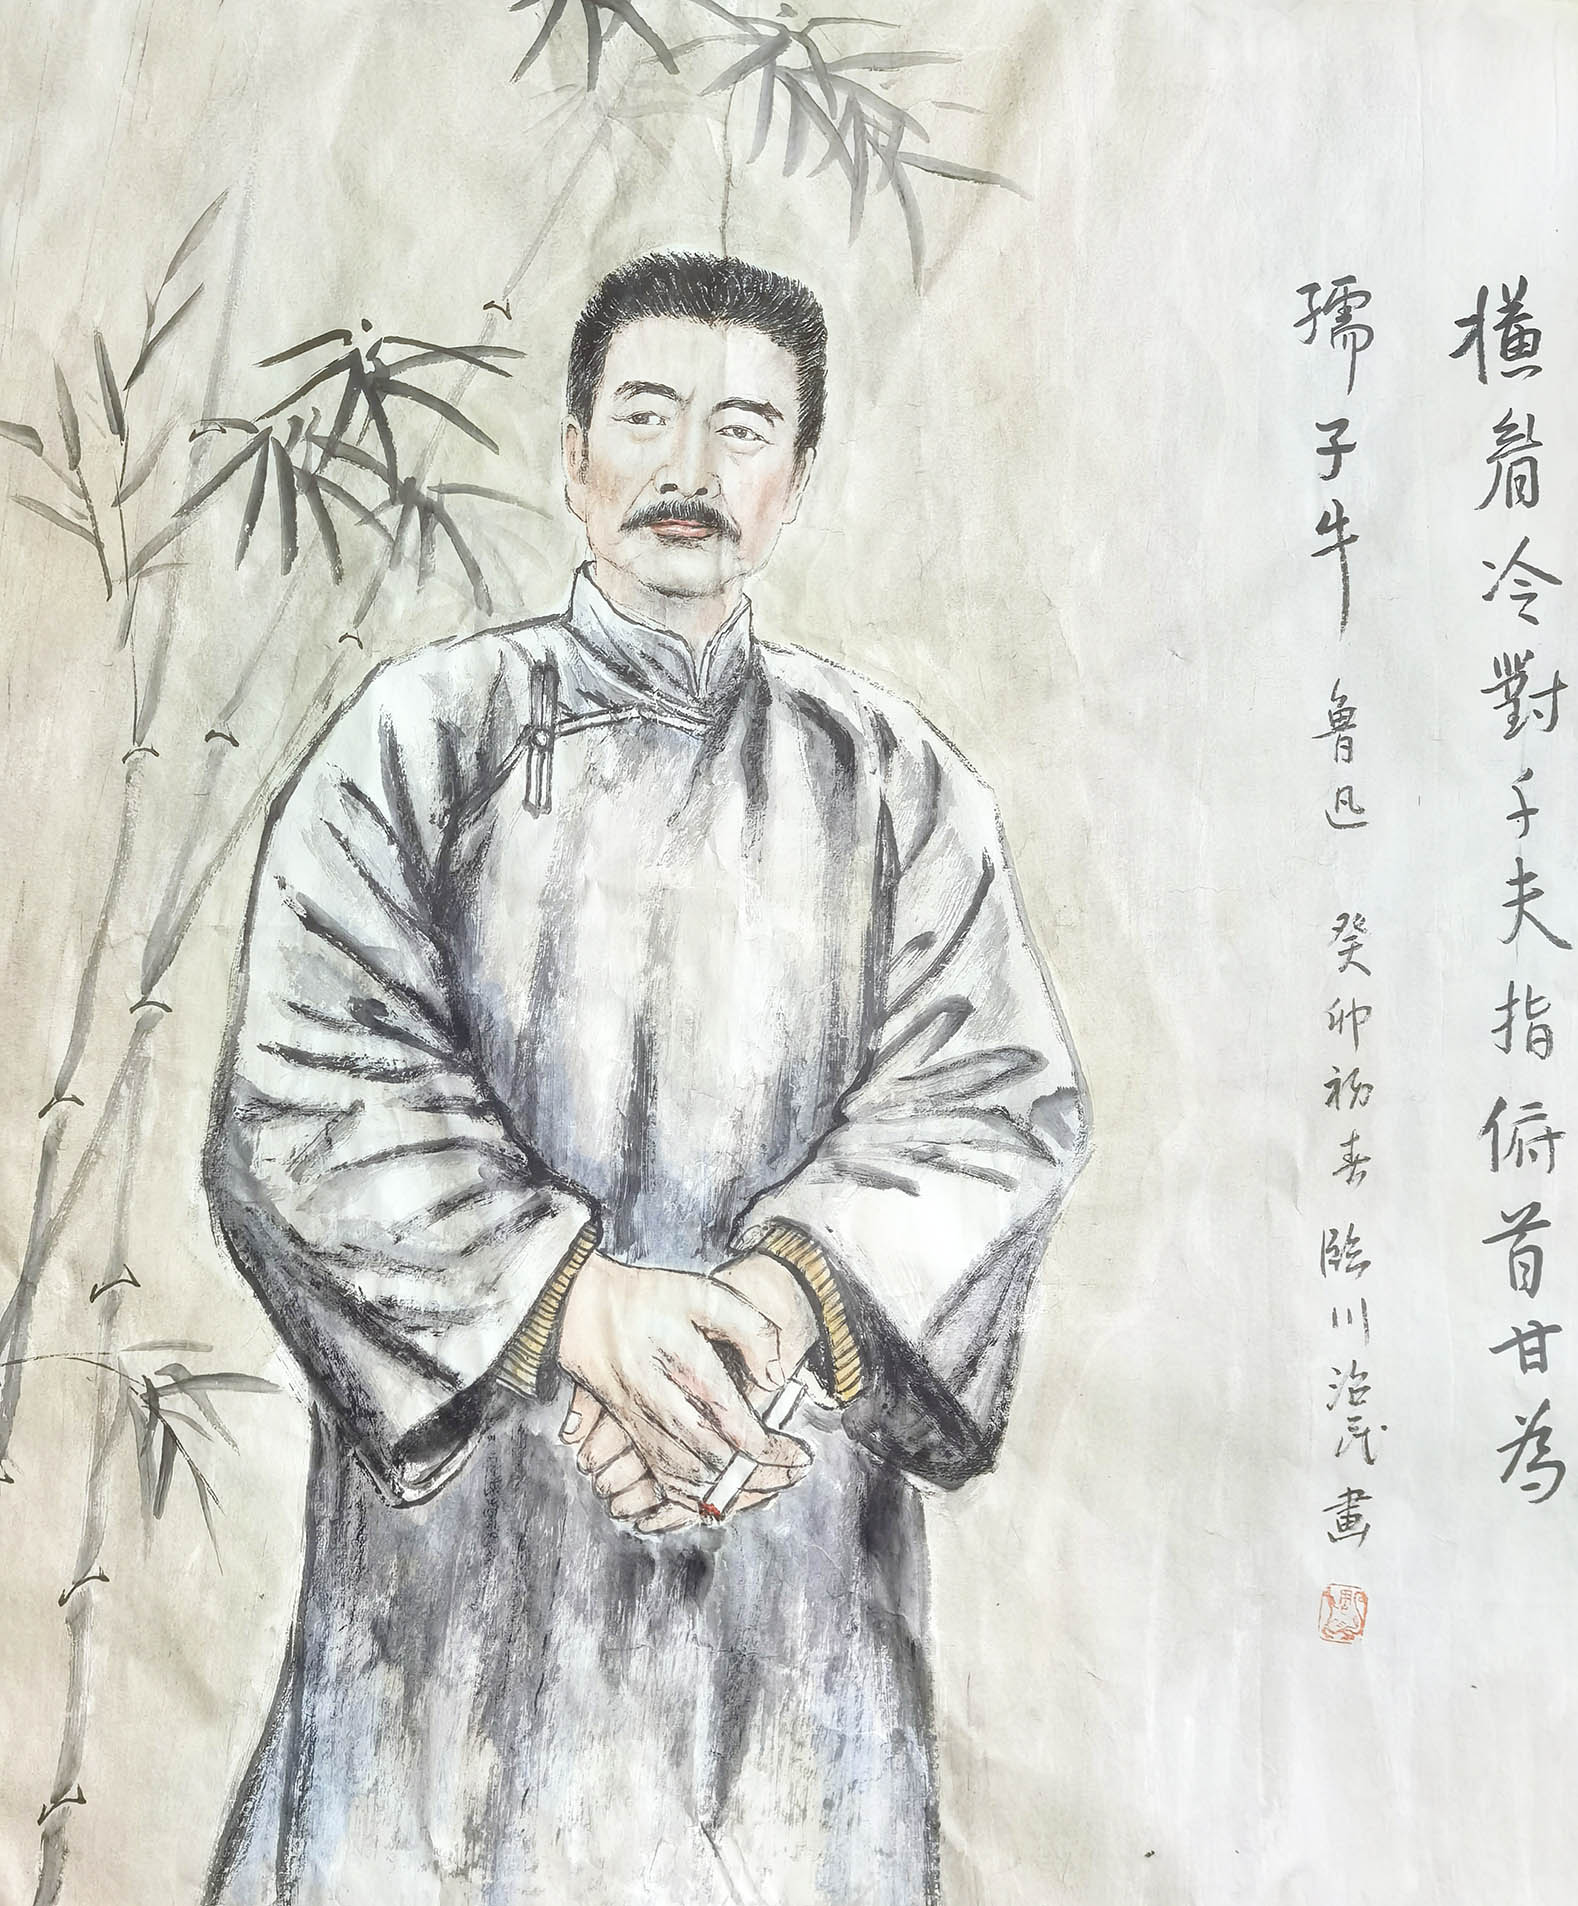 橫眉冷對千夫指俯首甘為
孺子牛 鲁迅 癸卯初春 臨川治民畫